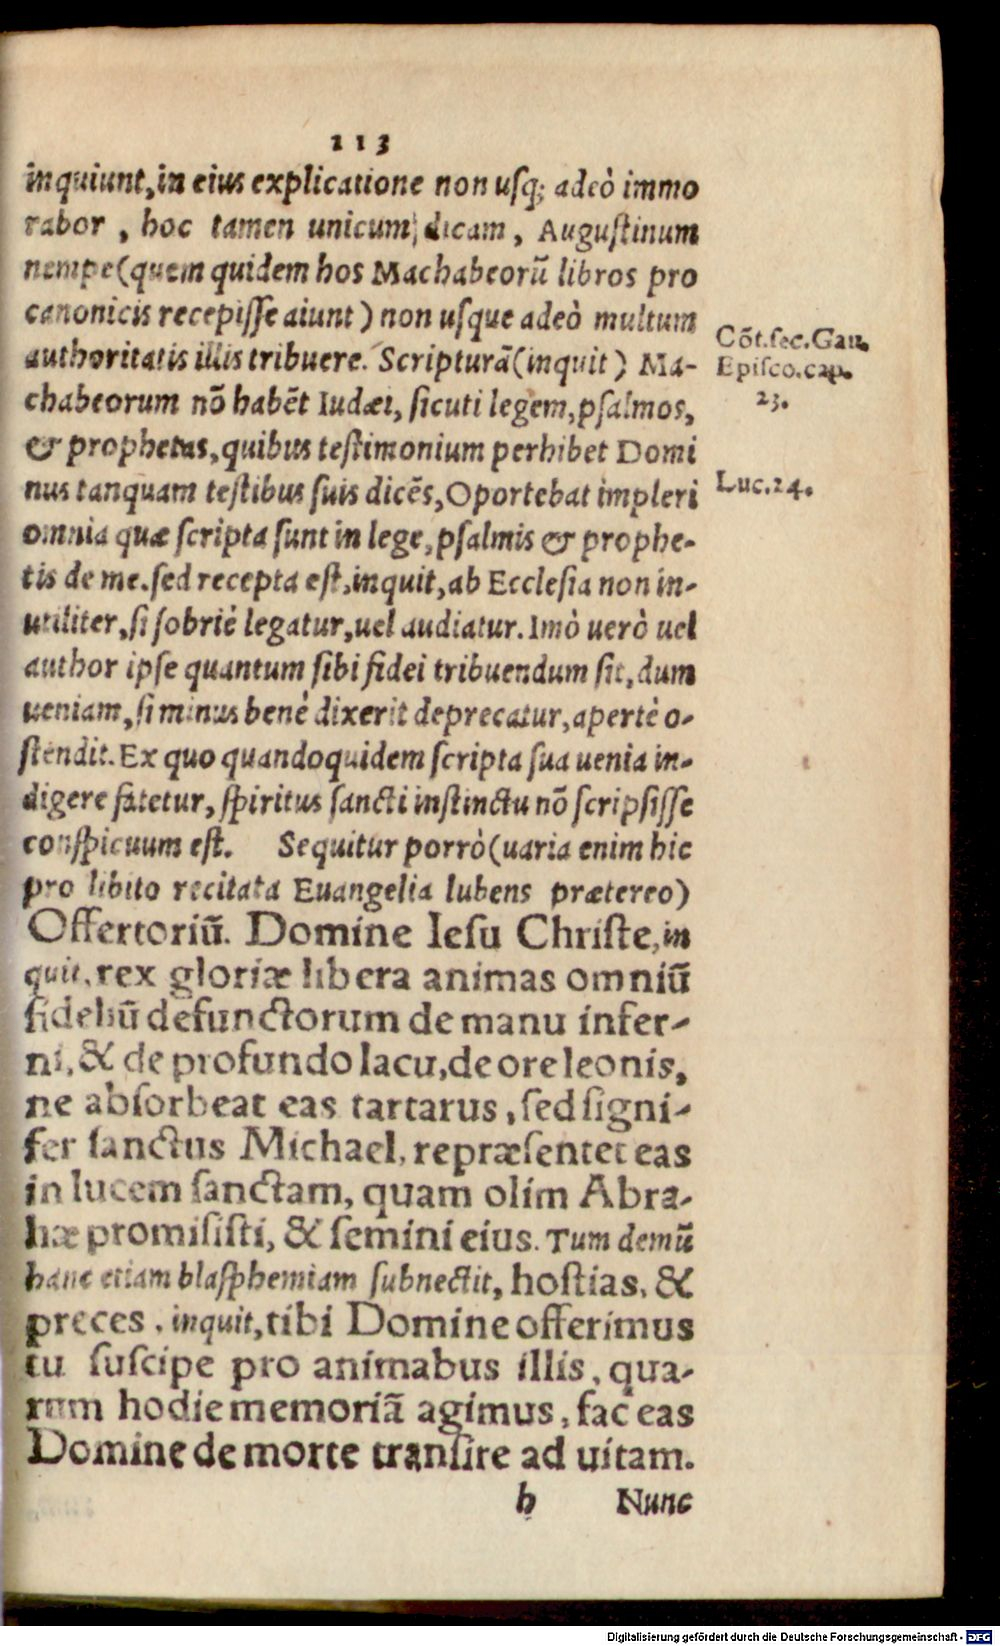 113
inquiunt, in eius explicatione non usq; adeò immo
rabor, hoc tamen unicum dicam, Augustinum
nempe (quem quidem hos Machabeorũ libros pro
canonicis recepisse aiunt) non usque adeò multum
authoritatis illis tribuere. Scripturã (inquit) Ma-
chabeorum nõ habẽt Iudæi, sicuti legem, psalmos,
& prophetas, quibus testimonium perhibet Domi
nus tanquam testibus suis dicẽs, Oportebat impleri
omnia quæ scripta sunt in lege, psalmis & prophe-
tis de me. sed recepta est, inquit, ab Ecclesia non in-
utiliter, si sobriè legatur, uel audiatur. Imò uerò uel
author ipse quantum sibi fidei tribuendum sit, dum
ueniam, si minus benè dixerit deprecatur, apertè o-
stendit. Ex quo quandoquidem scripta sua uenia in-
digere fatetur, spiritus sancti instinctu nõ scripsisse
conspicuum est. Sequitur porrò (uaria enim hic
pro libito recitata Euangelia lubens prætereo)
Offertoriũ. Domine Iesu Christe, in
quit, rex gloriæ libera animas omniũ
fideliũ defunctorum de manu infer-
ni, & de profundo lacu, de ore leonis,
ne absorbeat eas tartarus, sed signi-
fer sanctus Michael, repræsentet eas
in lucem sanctam, quam olim Abra-
hæ promisisti, & semini eius. Tum demũ
hanc etiam blasphemiam subnectit, hostias, &
preces, inquit, tibi Domine offerimus
tu suscipe pro animabus illis, qua-
rum hodie memoriã agimus, fac eas
Domine de morte transire ad uitam.
h Nunc
Cõt. sec. Gau.
Episco. cap.
23.
Luc. 24.
Digitalisierung gefördert durch die Deutsche Forschungsgemeinschaft - DFG